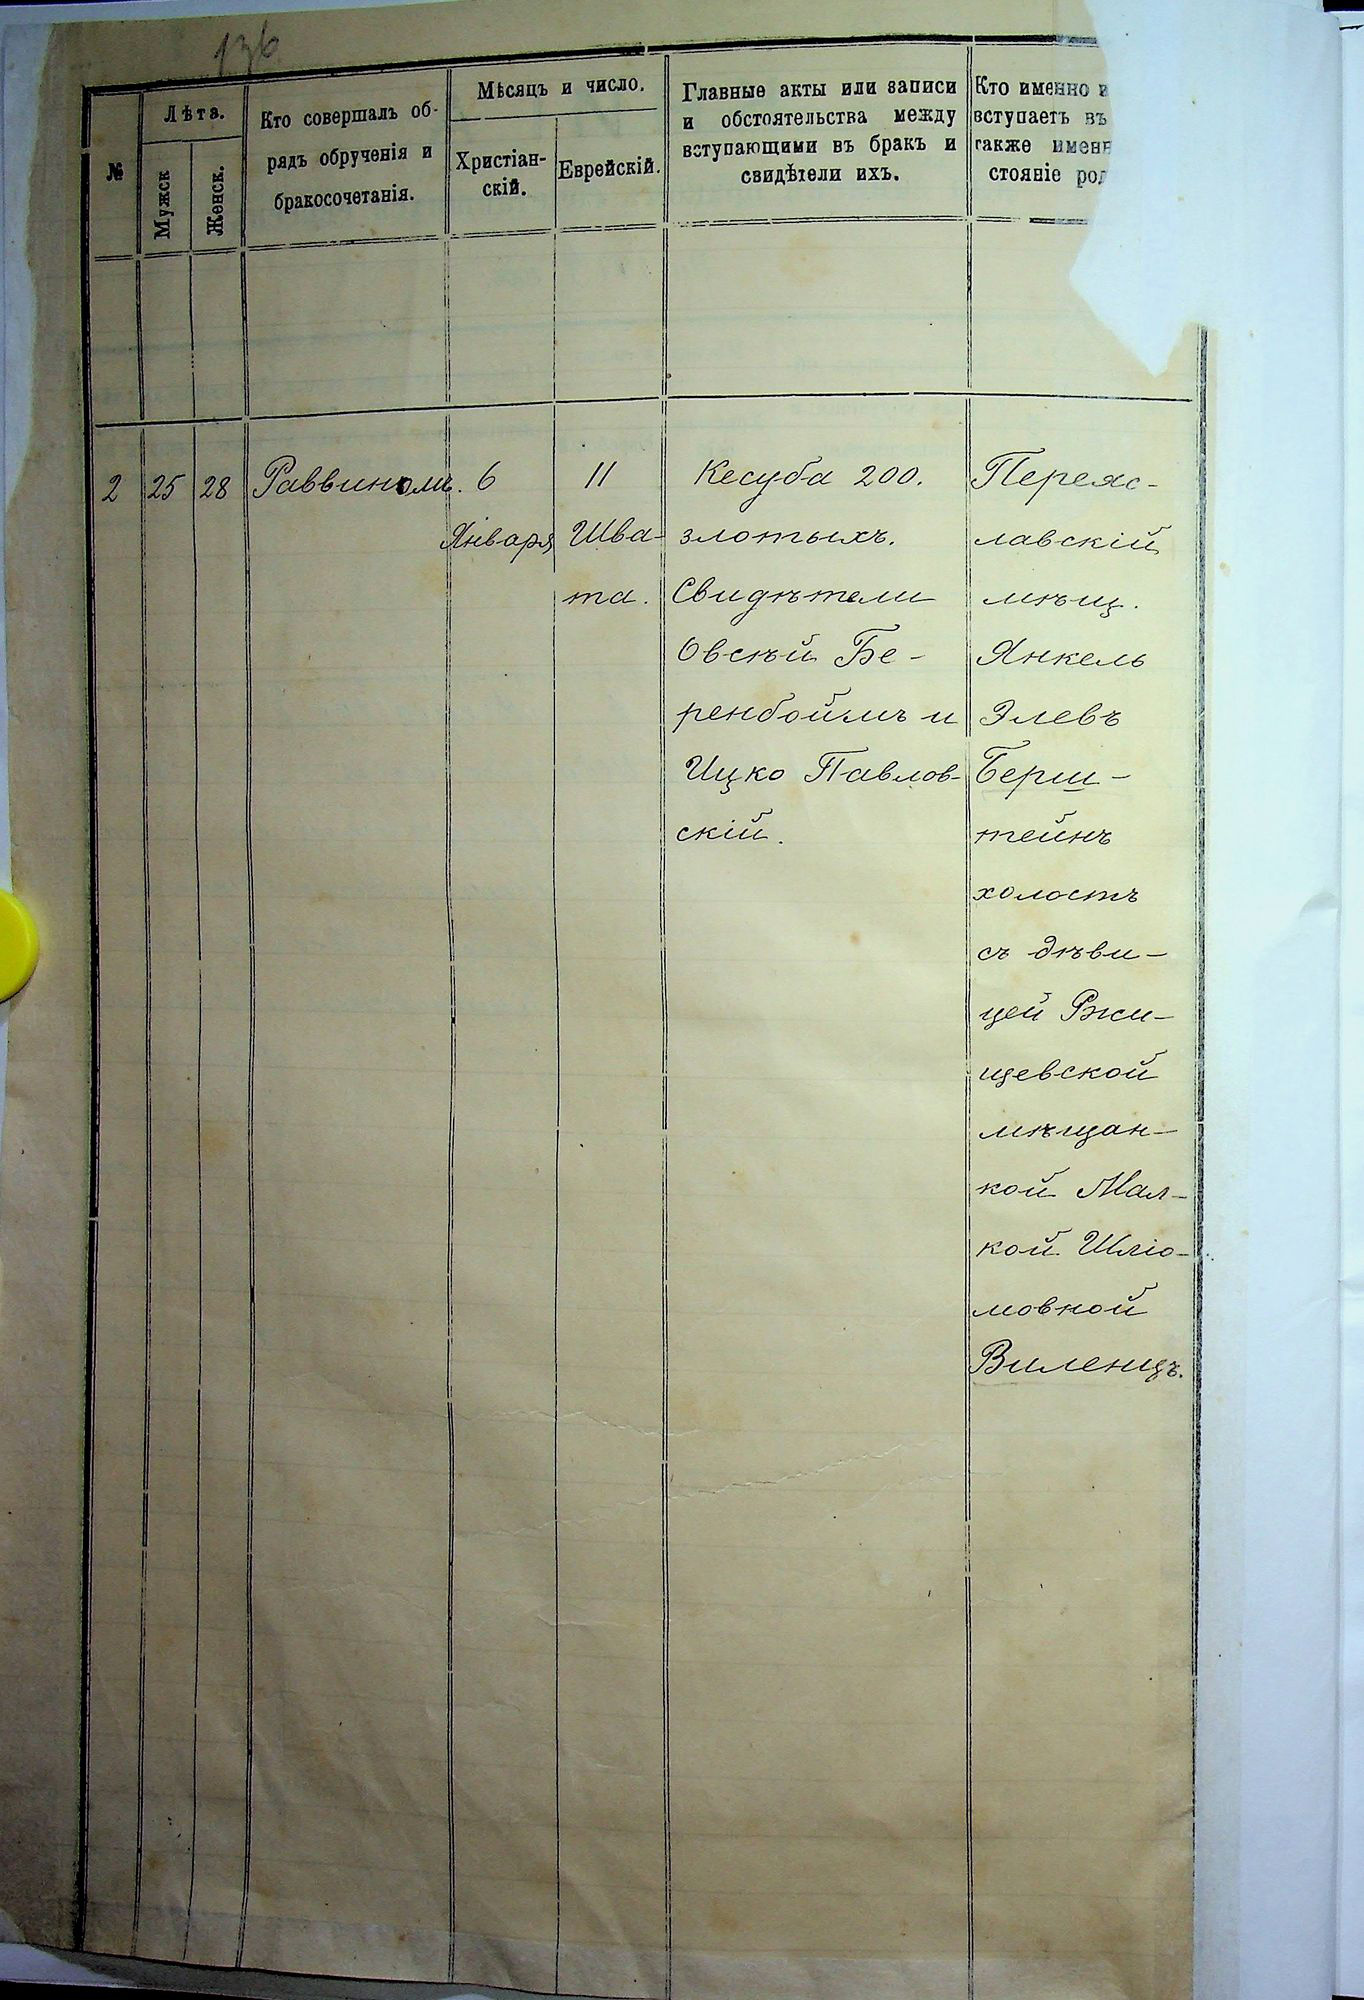 136
№
Лѣта.
Мужск
Женск.
Кто совершалъ об-
рядъ обрученія и
бракосочетанія.
Мѣсяцъ и число.
Христіан-
скій.
Еврейскій.
Главные акты или записи
и обстоятельства между
вступающими въ бракъ и
свидѣтели ихъ.
Кто именно и
вступаетъ въ
также именн
стояніе род
2
25
28
Раввиномъ.
6
Января
11
Шва-
та.
Кесуба 200.
злотыхъ.
Свидѣтели
Овсѣй Бе-
ренбоймъ и
Ицко Павлов-
скій.
Переяс-
лавскій
мѣщ.
Янкель
Элевъ
Берш-
тейнъ
холостъ
съ дѣви-
цей Ржи-
щевской
мѣщан-
кой Мал-
кой Шліо-
мовной
Виленцъ.